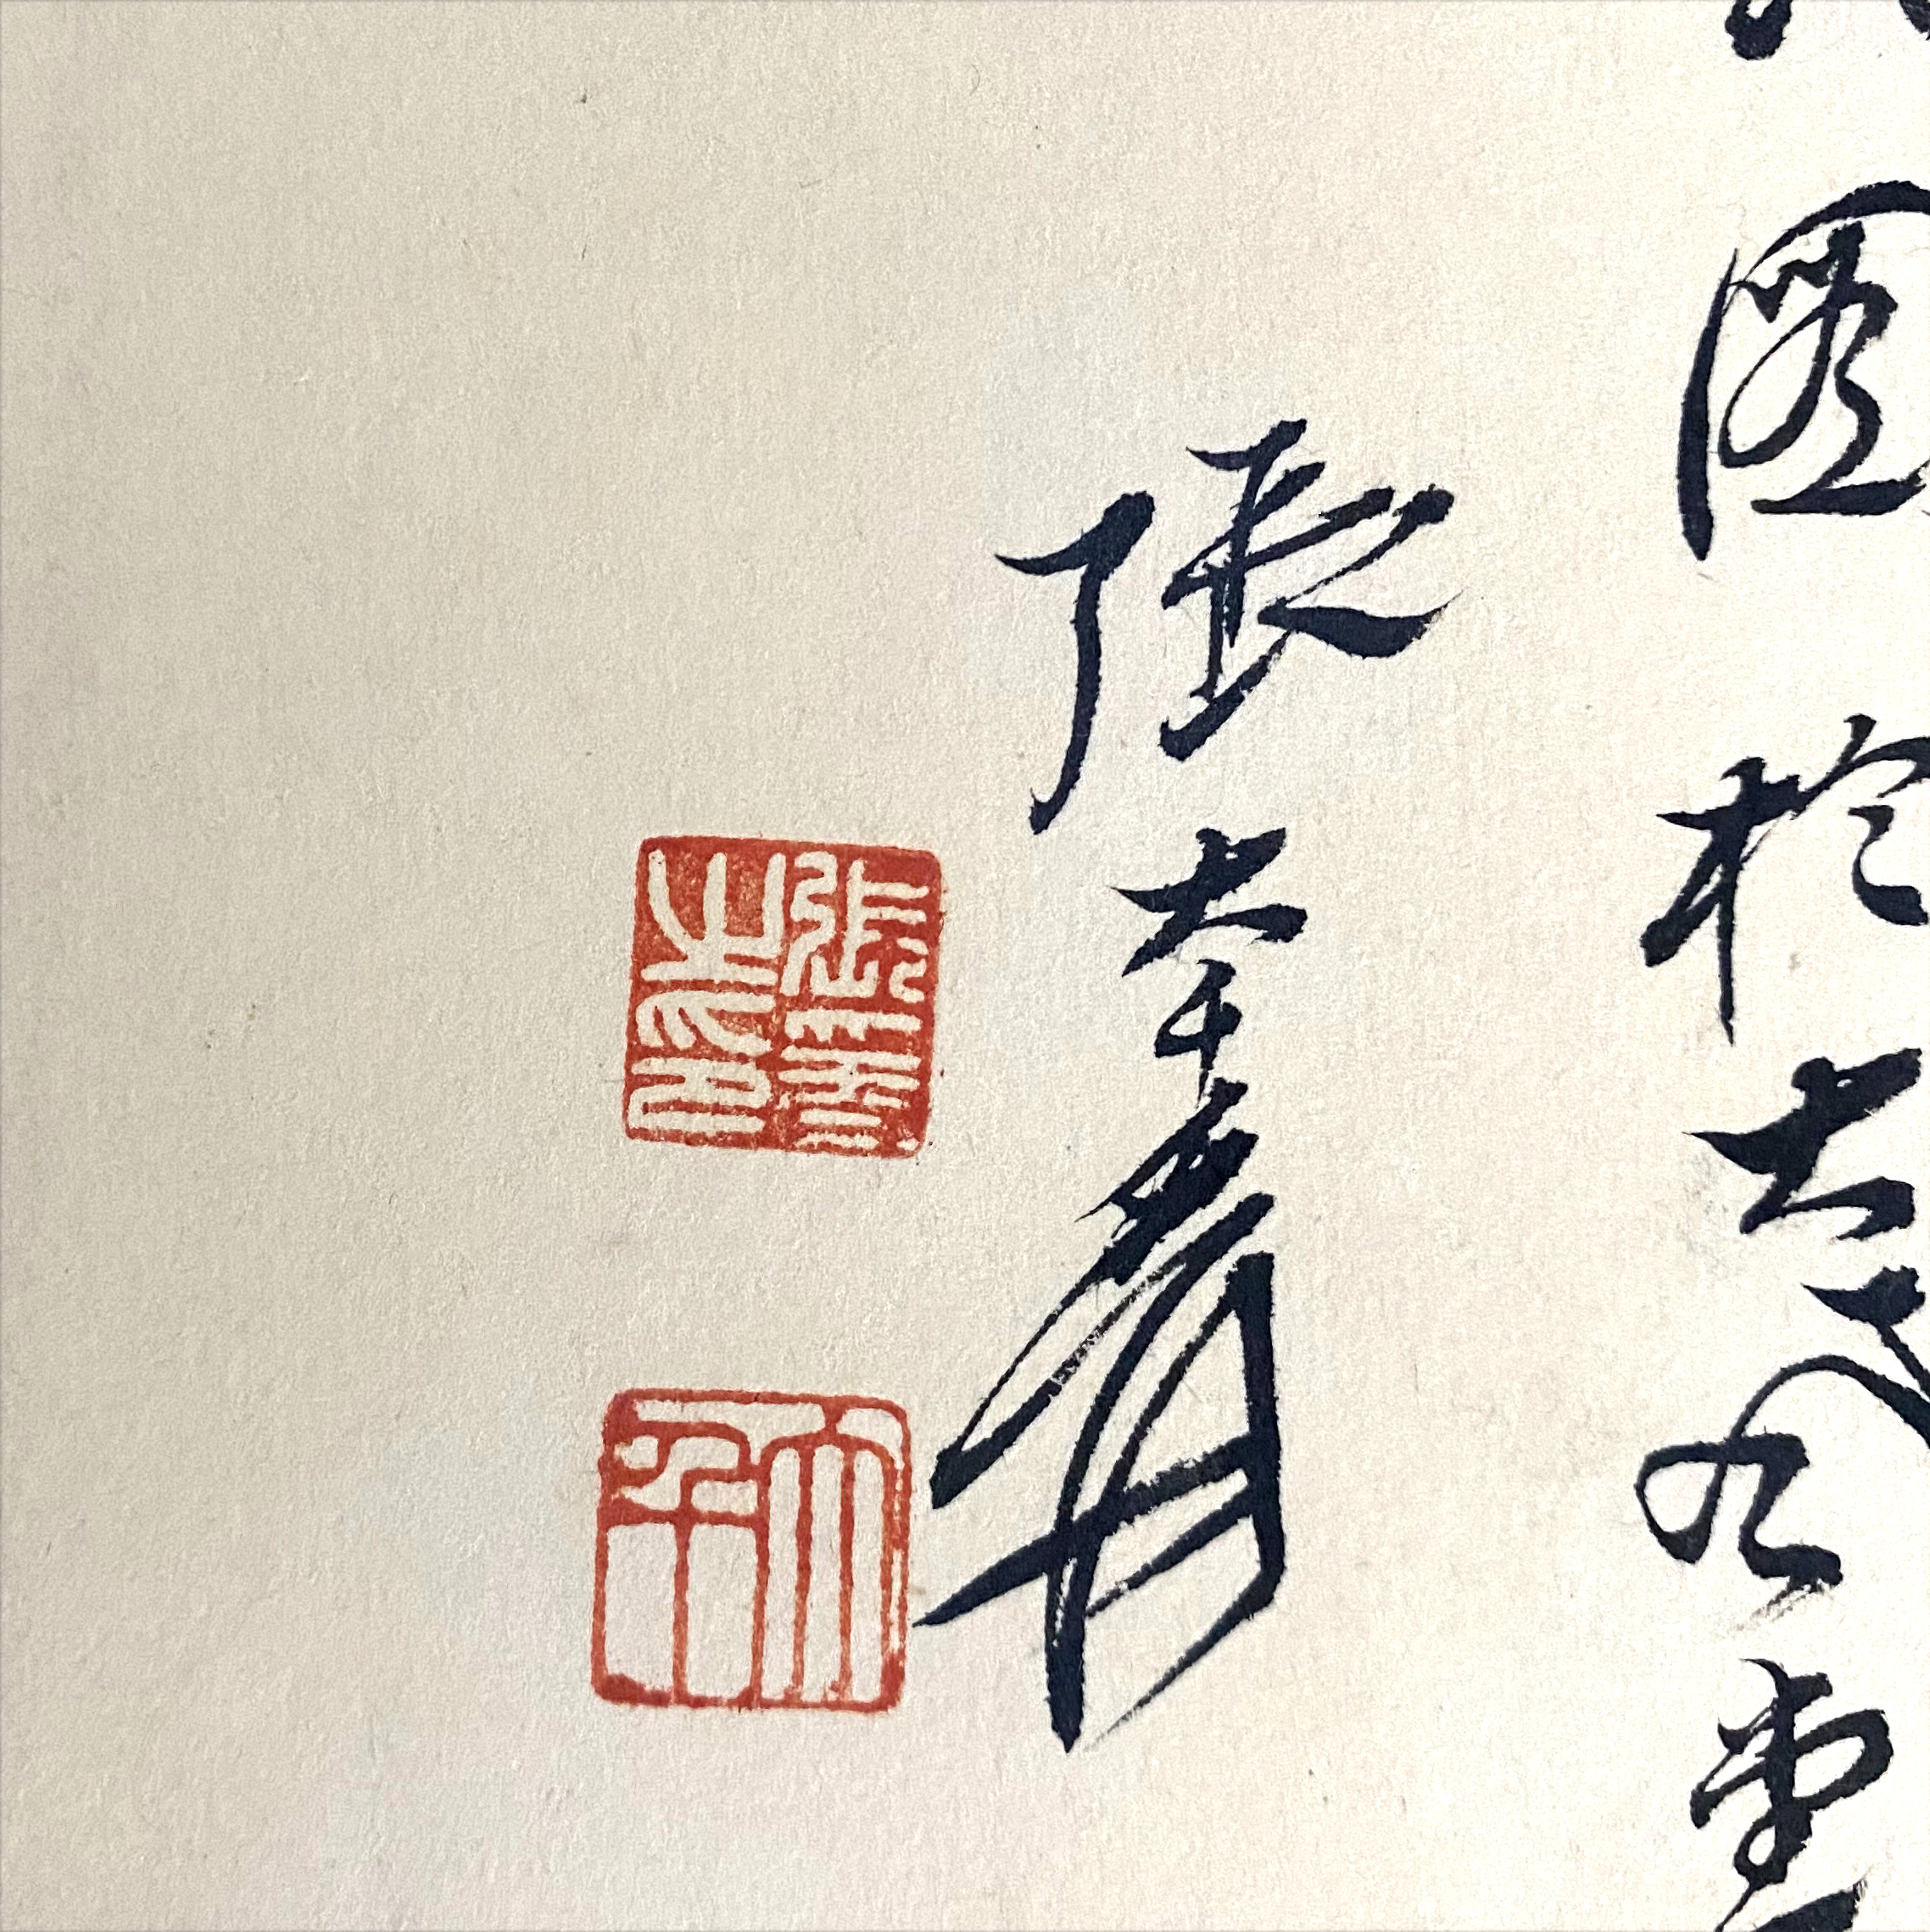 圖於大風堂
張大千爰
張爰之印
大千